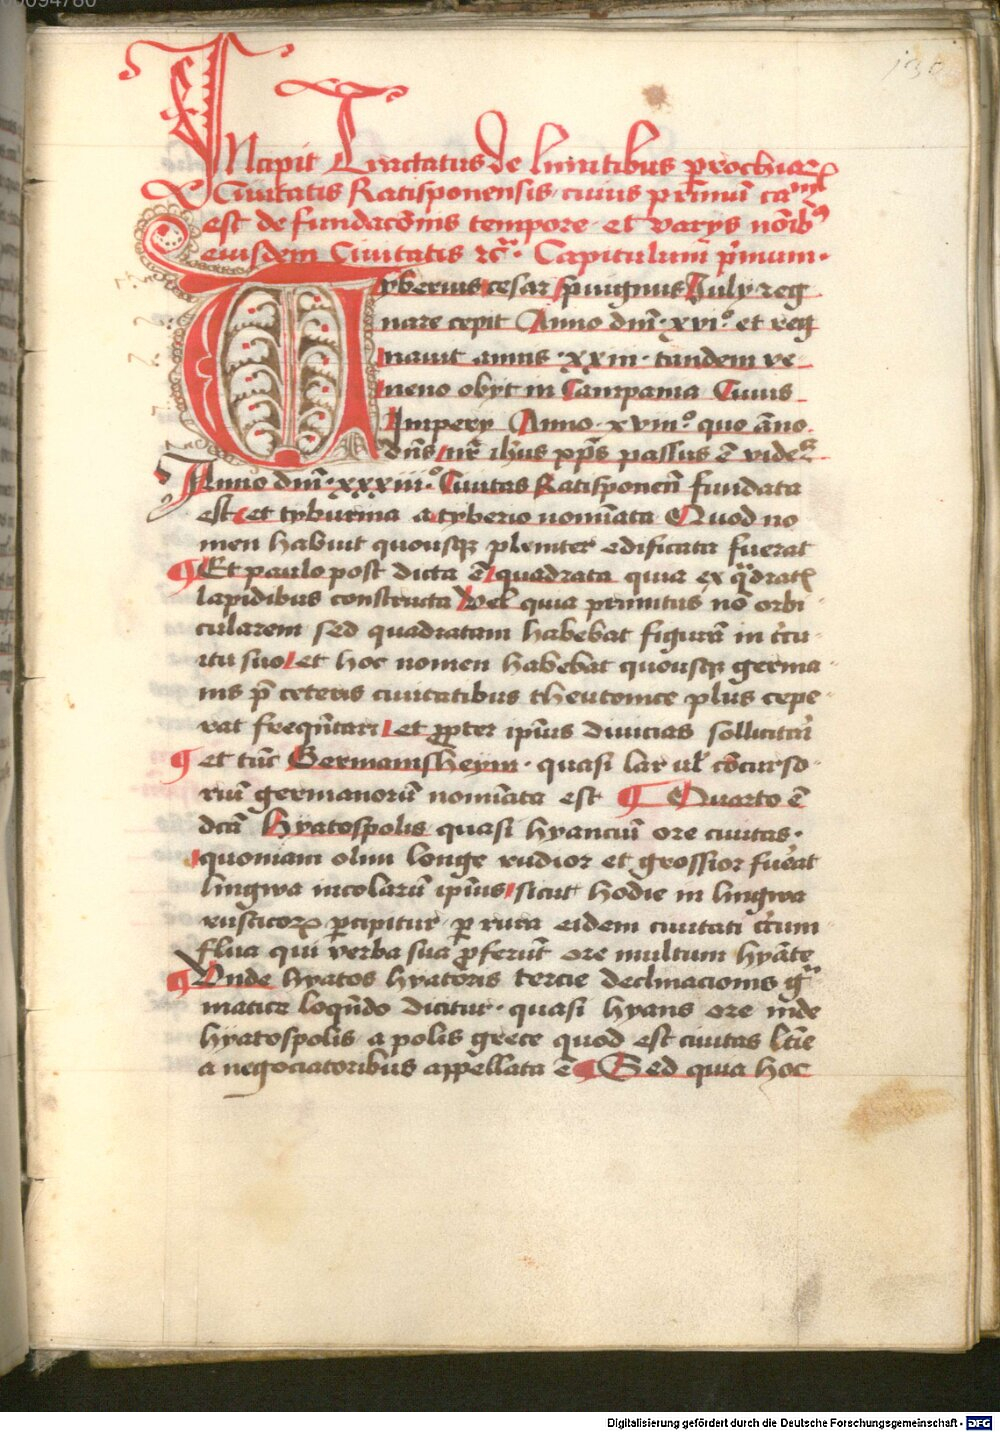 00094780
130
INcipit Tractatus de limitibus prochiarꝝ
Ciuitatis Ratisponensis cuius prīmū ca^m
est de fundacōnis tempore et varijs nōib9
eiusdem Ciuitatis ꝛcꝰ. Capitulum p̄mum.
Tyberius cesar priuignus Iulij reg
nare cepit Anno dnī xvi° et reg
nauit annis xxiii tandem ve
neno obijt in Campania Cuius
Imperij Anno xviii° quo āno
dn̄s nr̄ ihūs xpūs passus ē vidꝫ
Anno dnī xxxiii° Ciuitas Ratisponen̄ fundata
est et tyburina a tyberio nomīata Quod no
men habuit quousqꝫ pleniter edificata fuerat
¶ Et paulo post dicta ē quadrata quia ex q̄dratꝭ
lapidibus constructa Vel quia primitus nō orbi
cularem sed quadratam habebat figurā in cr̄cu
itu suo et hoc nomen habebat quousqꝫ germa
nis p̄ ceteris ciuitatibus theutonice plus cepe
rat freqn̄tari et ꝓpter ipīus diuicias sollicitari
¶ et tūc Germanisheym quasi lar ul̓ cōcurso
riū germanorū nomīata est ¶ Quarto ē
dcā Hyatospolis quasi hyanciū ore ciuitas
quoniam olim longe rudior et grossior fuerat
lingwa incolarū ipīus sicut hodie in lingwa
rusticorꝝ ꝑcipitur ꝑ rura eidem ciuitati cr̄cum
flua qui verba sua ꝓferūt ore multum hyāte
¶ Vnde hyatos hyatoris tercie declinacionis g^ra
matice loqn̄do dicitur quasi hyans ore inde
hyatospolis a polis grece quod est ciuitas lt̄ie
a negociatoribus appellata ē ¶ Sed quia hoc
Digitalisierung gefördert durch die Deutsche Forschungsgemeinschaft - DFG